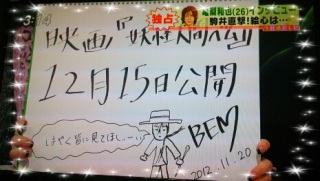 独占
亀梨和也(26)インタビュー
駒井直撃!絵心は…
映画『妖怪人間ベム』
12月15日公開
はやく皆に見てほしーっ
BEM
2012.11.20